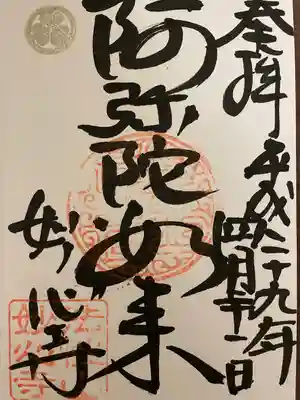 奉拝
平成二十九年
四月十二日
阿弥陀如来
妙心寺